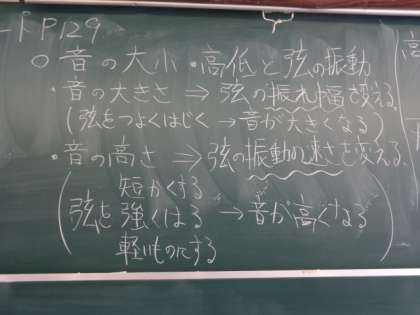 ード P129
○ 音の大小・高低と弦の振動
・音の大きさ ⇒ 弦の振れ幅を変える。
(弦をつよくはじく → 音が大きくなる)
・音の高さ ⇒ 弦の振動の速さを変える。
短かくする
弦を強くはる → 音が高くなる
軽いものにする